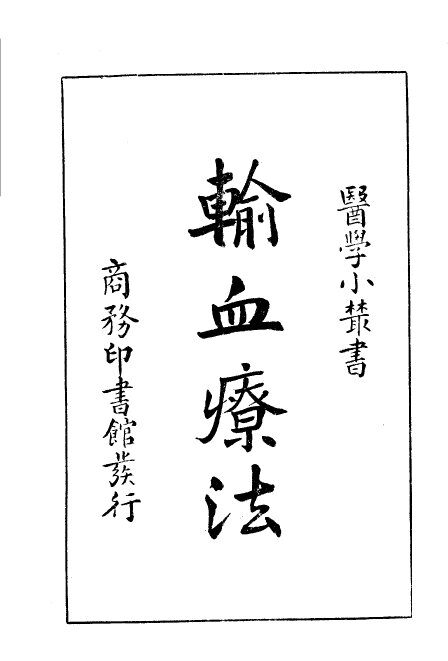 醫學小叢書
輸血療法
商務印書館發行